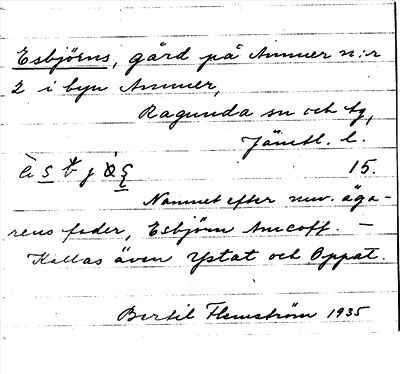 Esbjörns, gård på Ammer n:r
2 i byn Ammer,
Ragunda sn och tg,
Jämtl. l.
15.
Namnet efter nuv. äga-
rens fader, Esbjörn Amcoff. —
Kallas även Ystat och Oppat.
Bertil Flemström 1935